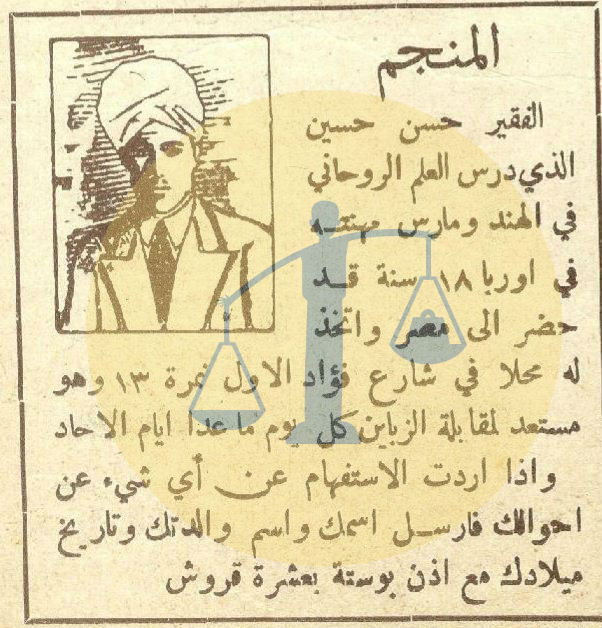 المنجم
الفقير حسن حسين
الذي درس العلم الروحاني
في الهند ومارس مهنتـه
في اوربا ١٨ سنة قـد
حضر الى مصر واتخذ
له محلا في شارع فؤاد الاول نمرة ١٣ وهو
مستعد لمقابلة الزباين كل يوم ما عدا ايام الاحاد
واذا اردت الاستفهام عن أي شيء عن
احوالك فارسل اسمك واسم والدتك وتاريخ
ميلادك مع اذن بوستة بعشرة قروش